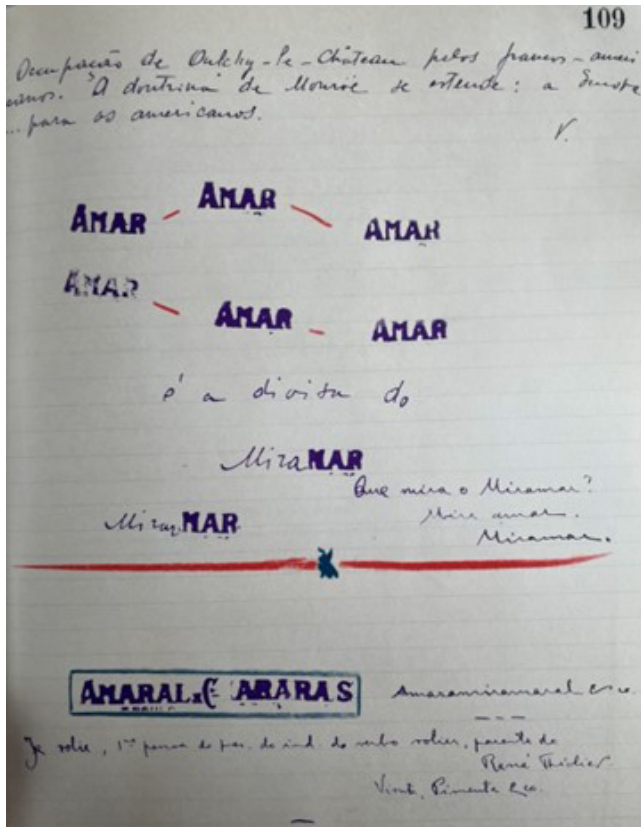 109
Ocupação de Oulchy-le-Château pelos franco-ameri
canos. A doutrina de Monroe se estende: a Europa
... para os americanos.
V.
AMAR — AMAR — AMAR
AMAR — AMAR — AMAR
é a divisa do
MiraMAR
MiraMAR
Que mira o Miramar?
Mira amar.
Miramar.
AMARAL & ARARAS
Amaramiramaral & co.
Je rolie, 1re pess. do pres. do ind. do verbo rolier, parente de
René Thiolier.
Viront, Pimenta & co.